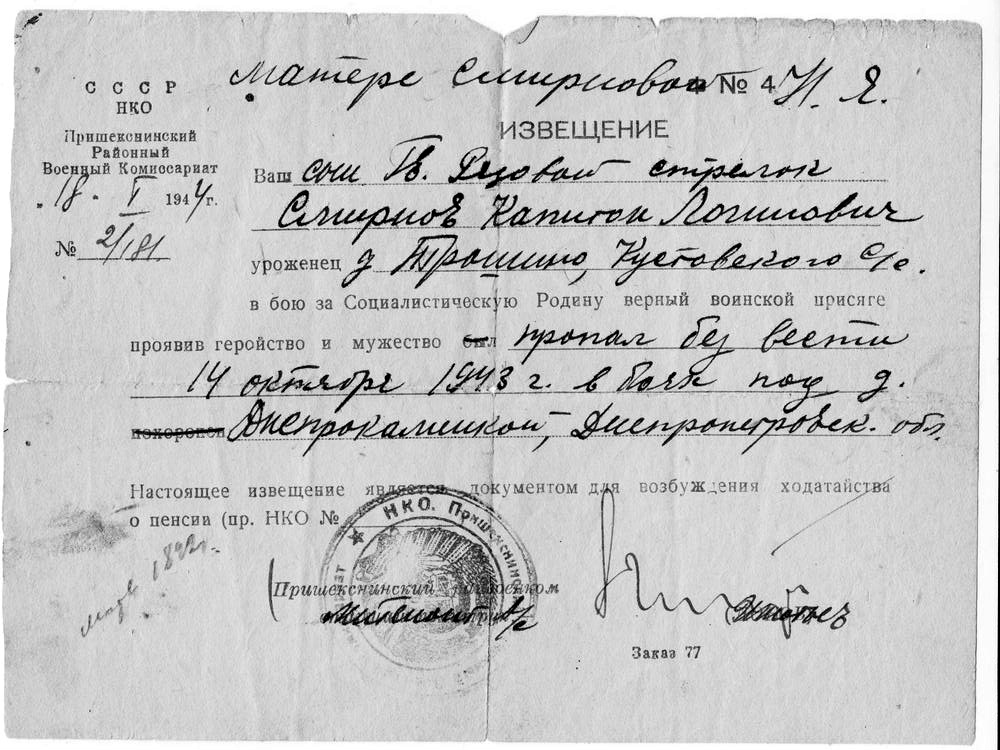 Матери Смирновой № 4 Н. Я.
СССР
НКО
Пришекснинский
Районный
Военный Комиссариат
18. V 1944 г.
№ 2/181.
ИЗВЕЩЕНИЕ
Ваш сын Гв. Рядовой стрелок
Смирнов Капитон Логинович
уроженец д. Трошино, Кустовского С/с.
в бою за Социалистическую Родину верный воинской присяге
проявив геройство и мужество был пропал без вести
14 октября 1943 г. в боях под д.
похоронен Днепрокаменкой, Днепропетровск. обл.
Настоящее извещение является документом для возбуждения ходатайства
о пенсии (пр. НКО №
НКО. Пришекснинск
1892г.
Пришекснинский райвоенком
Заказ 77